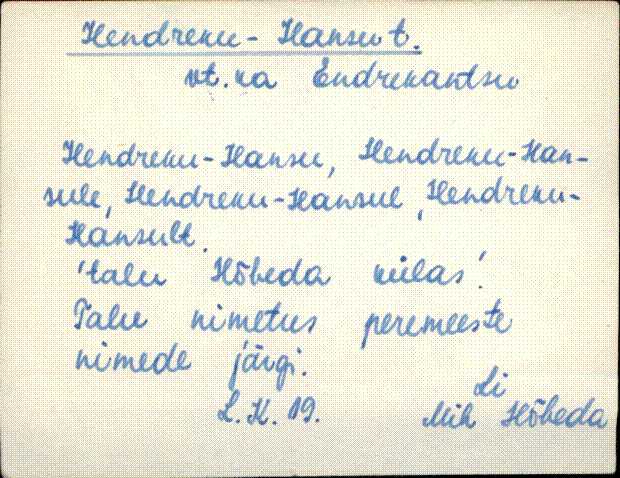 Hendreku-Hansu t.
vt. ka Endrekantsu
Hendreku-Hansu, Hendreku-Han-
sule, Hendreku-Hansul, Hendreku-
Hansult.
'talu Hõbeda külas'.
Talu nimetus peremeeste
nimede järgi.
Li
L. K. 19. Mih Hõbeda